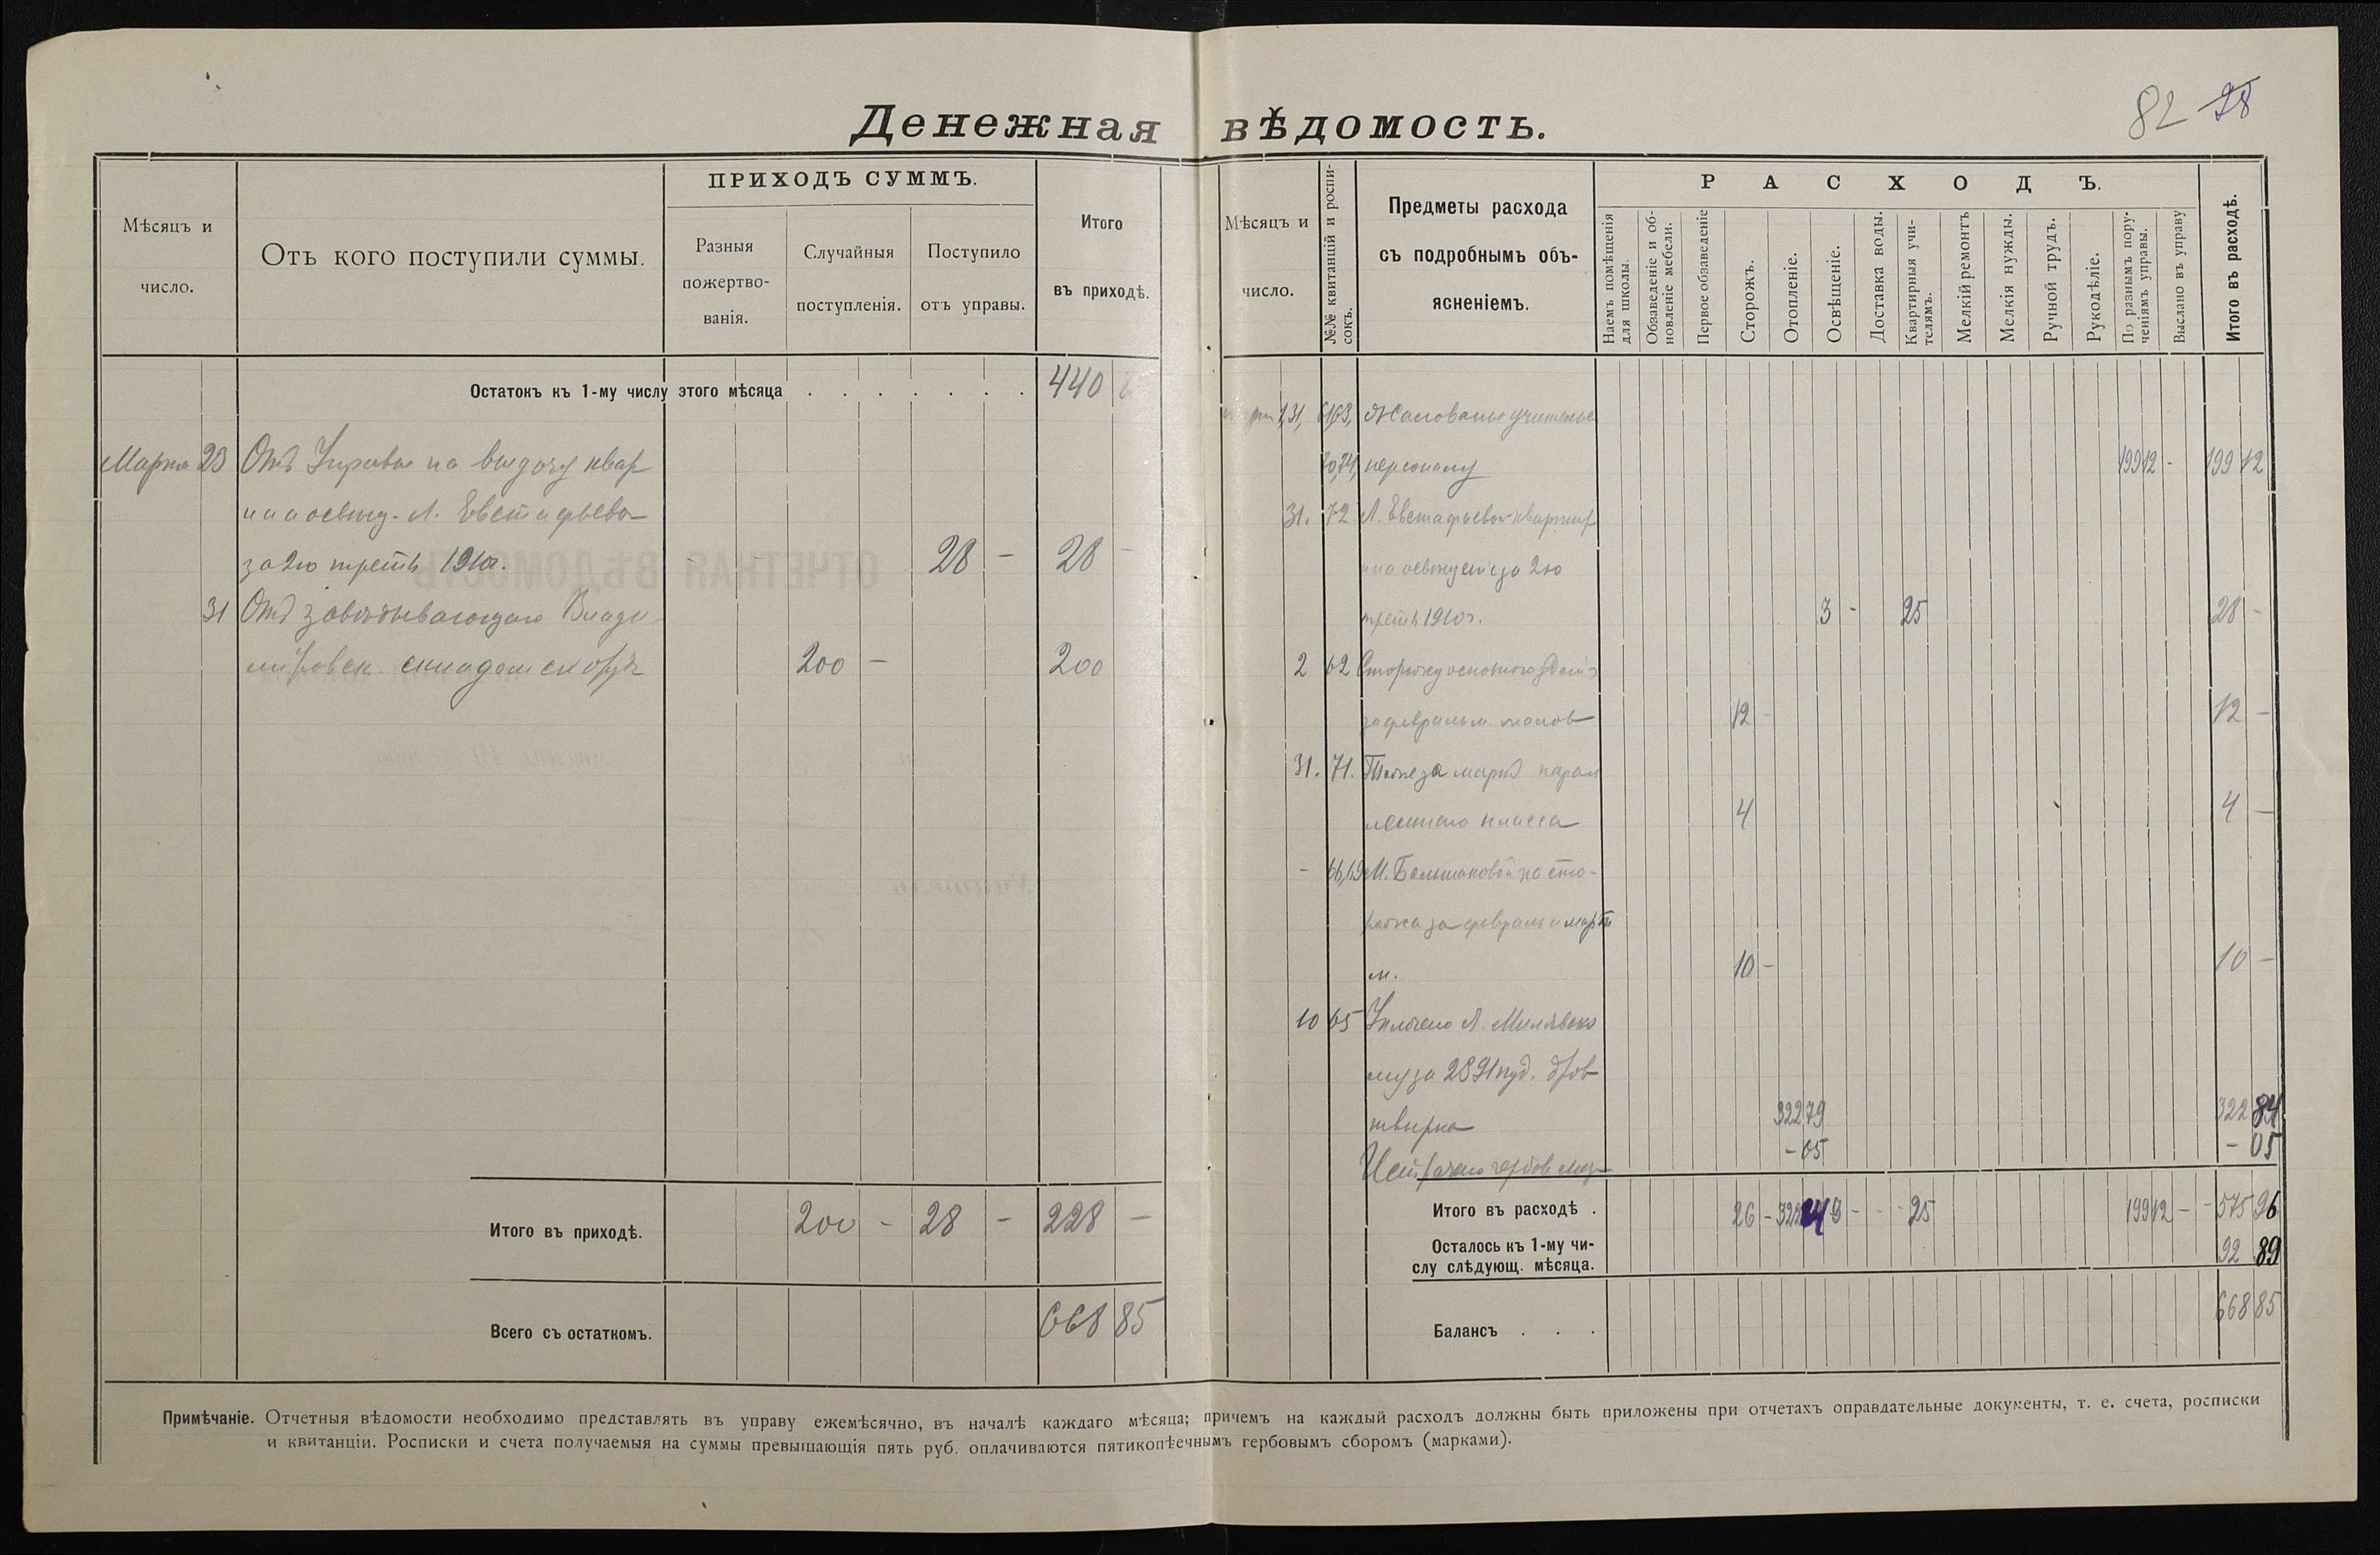 82 78
Денежная вѣдомость.
Мѣсяцъ и
число.
Отъ кого поступили суммы.
ПРИХОДЪ СУММЪ.
Разныя
пожертво-
ванія.
Случайныя
поступленія.
Поступило
отъ управы.
Итого
въ приходѣ.
Остатокъ къ 1-му числу этого мѣсяца . . . . . . . 440
Марта 23 Отъ Управы на выдачу квар
и на освѣщ. Л. Евстафьева
за 2ю треть 1910г. 28 - 28 -
31 Отъ завѣдывающаго Влади
мiровск. складом 200 - 200
Итого въ приходѣ. 200 - 28 - 228 -
Всего съ остаткомъ. 668 85
Мѣсяцъ и
число.
№№ квитанцій и роспи-
сокъ.
Предметы расхода
съ подробнымъ объ-
ясненіемъ.
РАСХОДЪ.
Наемъ помѣщенія
для школы.
Обзаведеніе и об-
новленіе мебели.
Первое обзаведеніе
Сторожъ.
Отопленіе.
Освѣщеніе.
Доставка воды.
Квартирныя учи-
телямъ.
Мелкій ремонтъ
Мелкія нужды.
Ручной трудъ.
Рукодѣліе.
По разнымъ пору-
ченіямъ управы.
Выслано въ управу
Итого въ расходѣ.
31, Жалованье
персоналу 199 12 - 199 12
31. 72 Л. Евстафьевой квартир
и на освѣщеніе за 2ю
треть 1910г. 3 - 25 28 -
2 62 Сторожу основного
за февраль м. жалов 12 - 12 -
31. 71. Тоже за мартъ парал
лельнаго класса 4 4 -
- 66,69 М. Большаковой на сто-
рожа за февраль и мартъ
м. 10 - 10 -
10 65 Уплочено Л.
му за 2891 пуд. дров
322 79 322 84
- 05 - 05
Итого въ расходѣ . 26 - 25 199 12 - 575 96
Осталось къ 1-му чи-
слу слѣдующ. мѣсяца. 92 89
Балансъ . . . 668 85
Примѣчаніе. Отчетныя вѣдомости необходимо представлять въ управу ежемѣсячно, въ началѣ каждаго мѣсяца; причемъ на каждый расходъ должны быть приложены при отчетахъ оправдательные документы, т. е. счета, росписки
и квитанціи. Росписки и счета получаемыя на суммы превышающія пять руб. оплачиваются пятикопѣечнымъ гербовымъ сборомъ (марками).